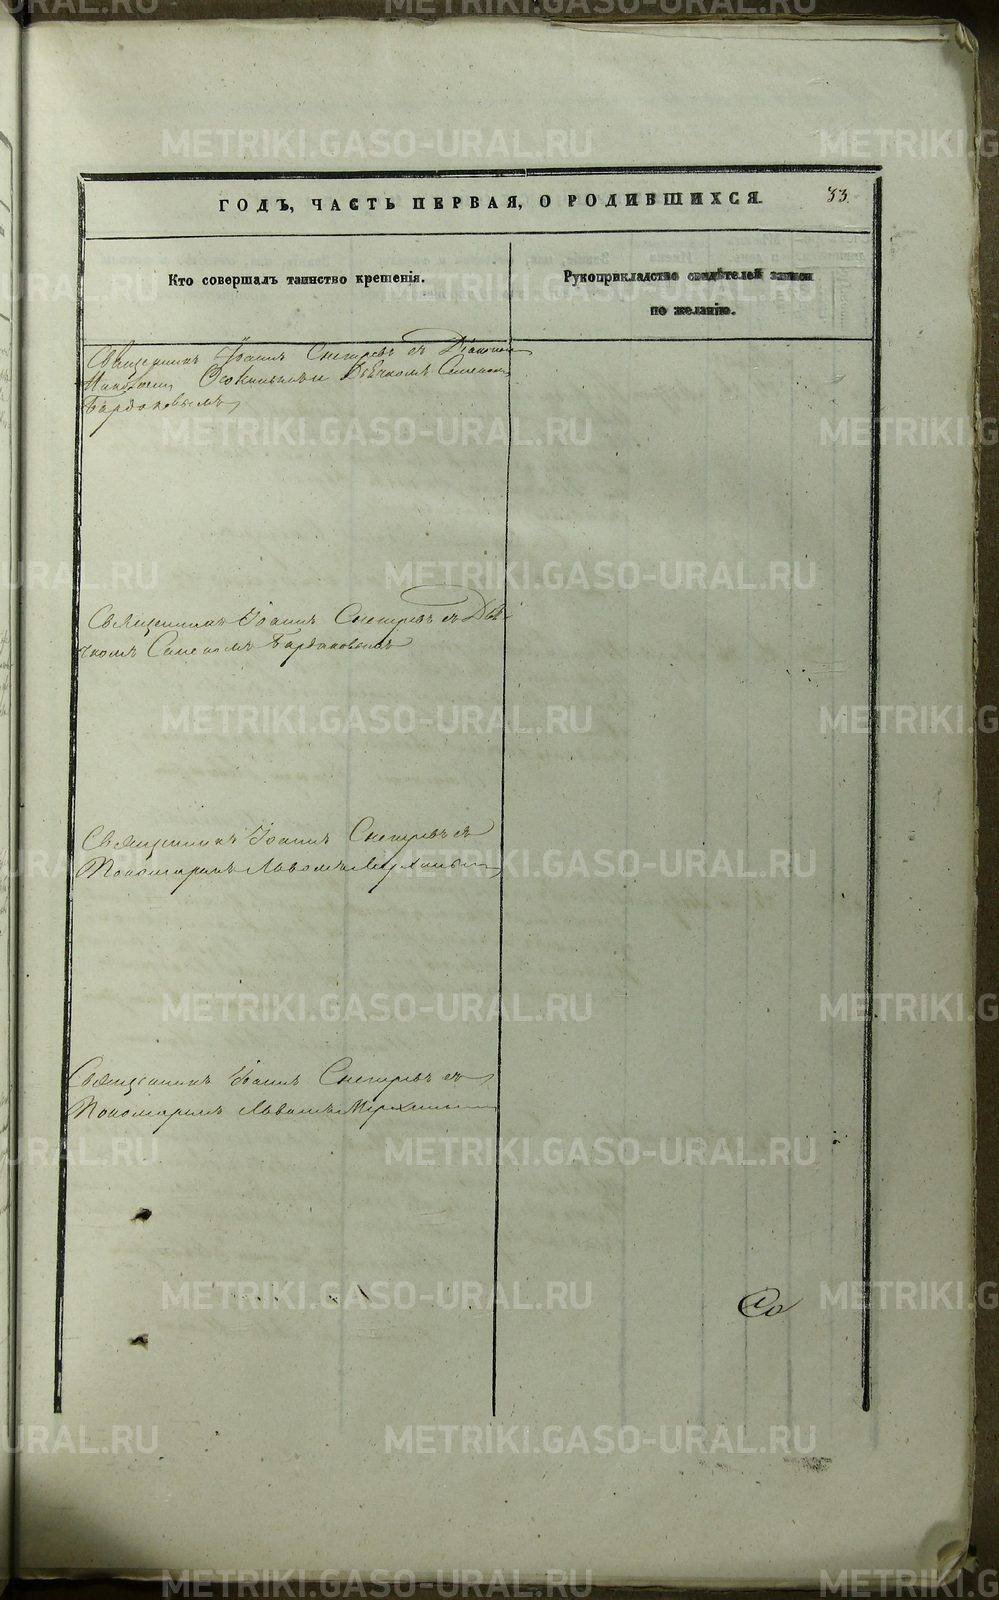 ГОДЪ, ЧАСТЬ ПЕРВАЯ, О РОДИВШИХСЯ.
33.
Кто совершалъ таинство крещенія.
Рукоприкладство свидѣтелей записи
по желанію.
Священникъ Іоаннъ Снегиревъ съ Діакономъ
Осокинымъ и Дьячкомъ Симеономъ
Бардаковымъ
Священникъ Іоаннъ Снегиревъ съ Дья-
чкомъ Симеономъ Бардаковымъ
Священникъ Іоаннъ Снегиревъ съ
Пономаремъ Львомъ
Священникъ Іоаннъ Снегиревъ съ
Пономаремъ Львомъ
METRIKI.GASO-URAL.RU